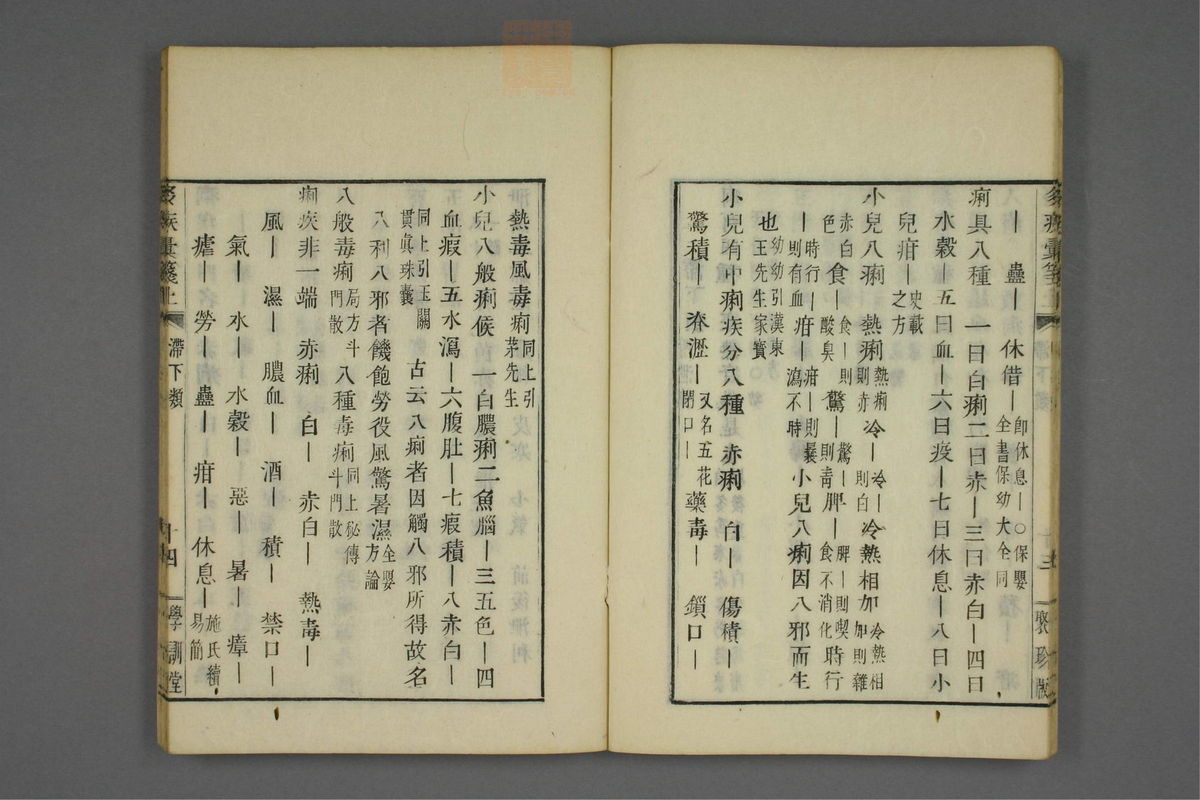 ｜　蠱｜休借｜即休息｜○保嬰全書保幼大全同
痢具八種　一曰白痢二曰赤｜三曰赤白｜四曰
水穀｜五曰血｜六曰疫｜七曰休息｜八曰小
兒疳｜史載之方
小兒八痢　熱痢熱痢則赤冷｜冷｜則白冷熱相加冷熱相加則雜
赤白食｜食｜則酸臭驚｜驚｜則靑脾｜脾｜則喫食不消化時行
｜時行｜則有血疳｜疳｜則瀉不時小兒八痢因八邪而生
也幼幼引漢東王先生家寶
小兒有中痢疾分八種　赤痢　白｜　傷積｜
驚積｜　瀝｜又名五花閉口｜藥毒｜　鎖口｜
熱毒風毒痢同上引茅先生
小兒八般痢候　一白膿痢二魚腦｜三五色｜四
血瘕｜五水瀉｜六腹肚｜七瘕積｜八赤白｜
同上引玉關貫眞珠囊　古云八痢者因觸八邪所得故名
八利八邪者饑飽勞役風驚暑濕全嬰方論
八般毒痢局方斗門散　八種毒痢同上秘傳斗門散
痢疾非一端　赤痢　白｜　赤白｜　熱毒｜
風｜　濕｜　膿血｜　酒｜　積｜　禁口｜
氣｜　水｜　水穀｜　惡｜　暑｜　瘴｜
瘧｜　勞｜　蠱｜　疳｜　休息｜施氏續易簡
滯下類　十四　學訓堂
滯下類　聚珍版